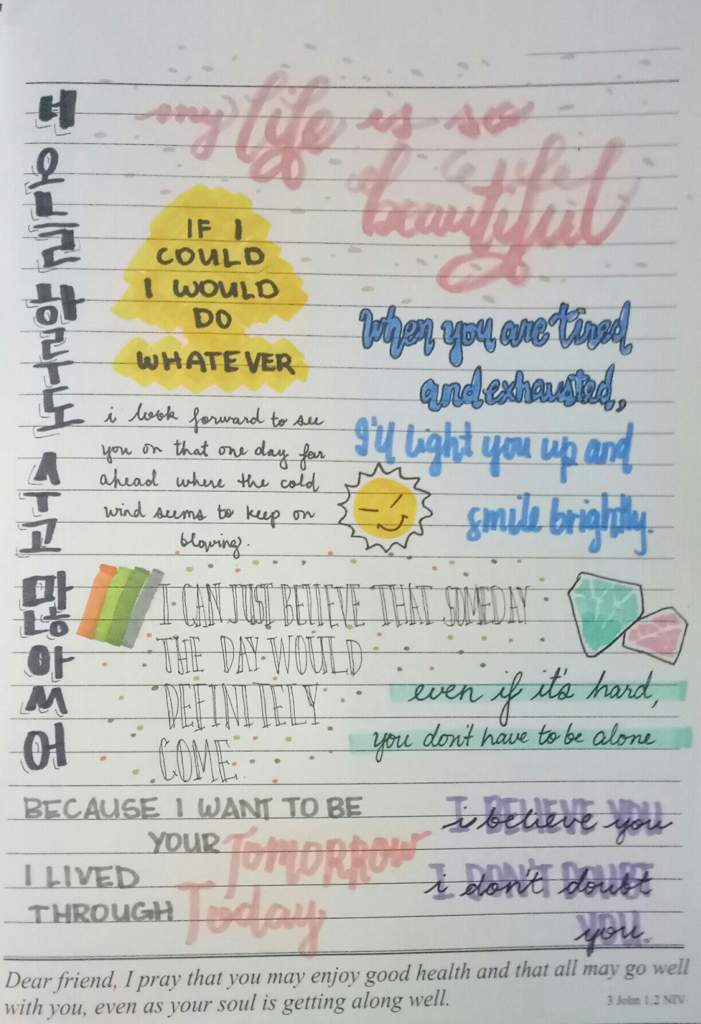 네 오늘 하루도 수고 많았어
my life is so
beautiful
IF I
COULD
I WOULD
DO
WHATEVER
When you are tired
and exhausted,
I'll light you up and
smile brightly.
i look forward to see
you on that one day far
ahead where the cold
wind seems to keep on
blowing.
I CAN JUST BELIEVE THAT SOMEDAY
THE DAY WOULD
DEFINITELY
COME
even if it's hard,
you don't have to be alone
BECAUSE I WANT TO BE
YOUR TOMORROW
I LIVED
THROUGH Today
I BELIEVE YOU
i believe you
I DON'T DOUBT
i don't doubt
YOU.
you.
Dear friend, I pray that you may enjoy good health and that all may go well
with you, even as your soul is getting along well.
3 John 1:2 NIV